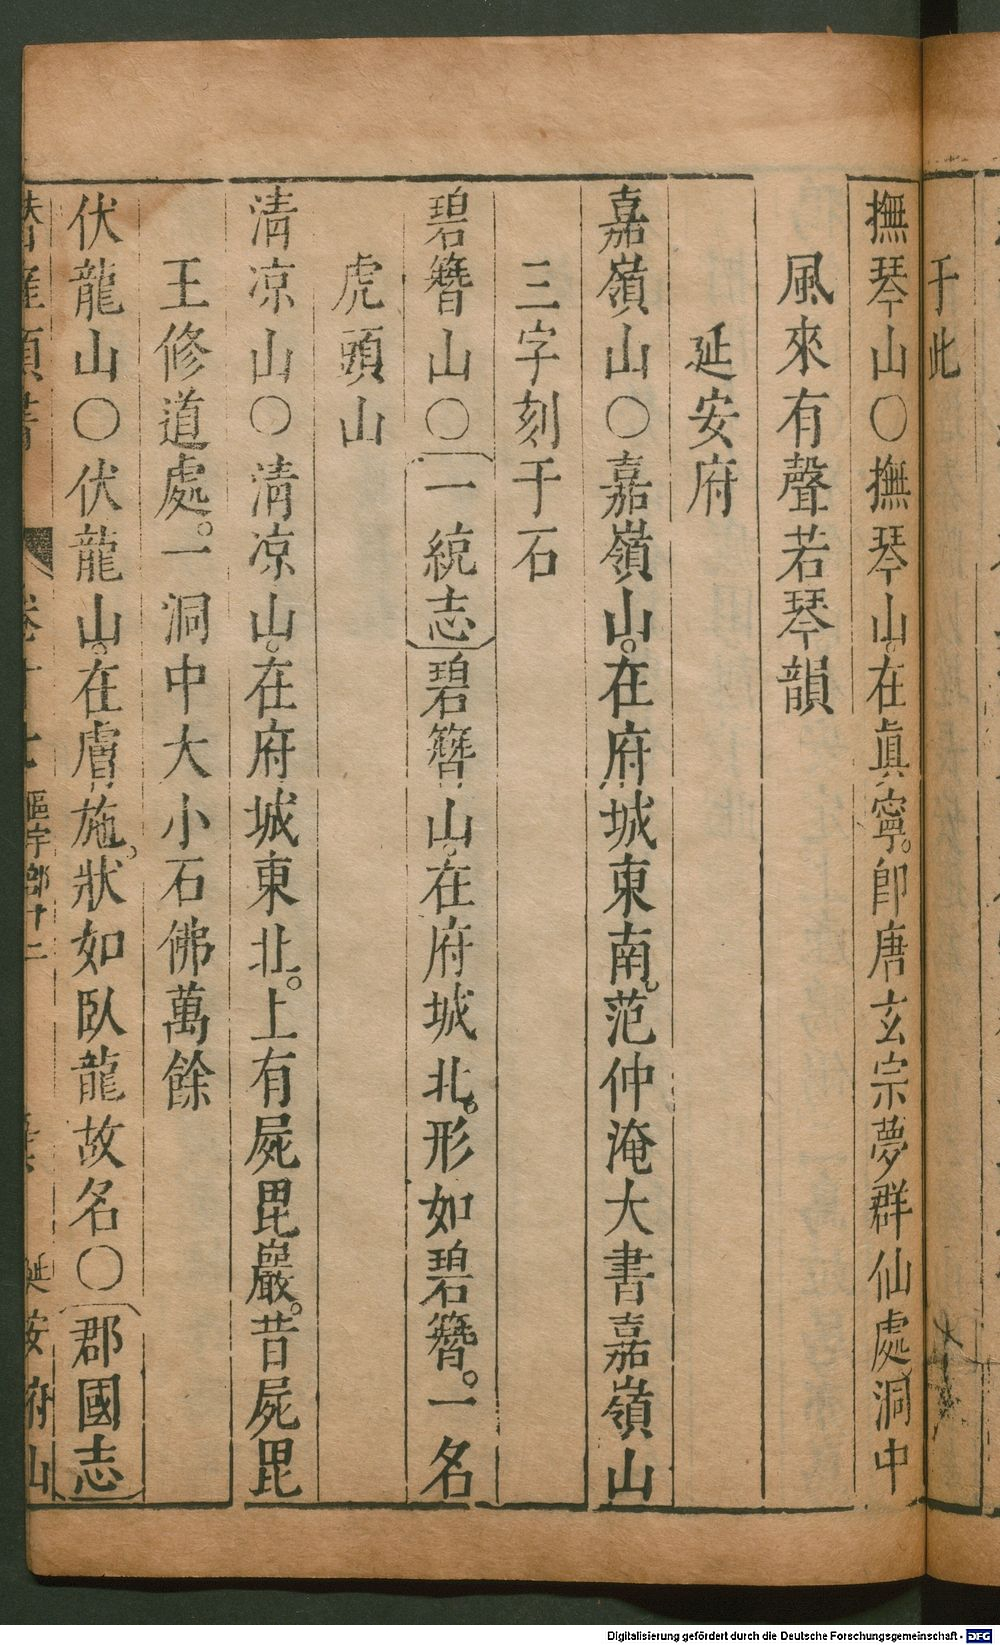 于此
撫琴山〇撫琴山。在眞寧。卽唐玄宗夢群仙處。洞中
風來有聲若琴韻
延安府
嘉嶺山〇嘉嶺山。在府城東南。范仲淹大書嘉嶺山
三字刻于石
碧簪山〇〔一統志〕碧簪山。在府城北。形如碧簪。一名
虎頭山
清凉山〇清凉山。在府城東北。上有屍毘巖。昔屍毘
王修道處。一洞中大小石佛萬餘
伏龍山〇伏龍山。在膚施。狀如臥龍故名〇〔郡國志〕
卷 區宇部十二 延安府山
Digitalisierung gefördert durch die Deutsche Forschungsgemeinschaft - DFG